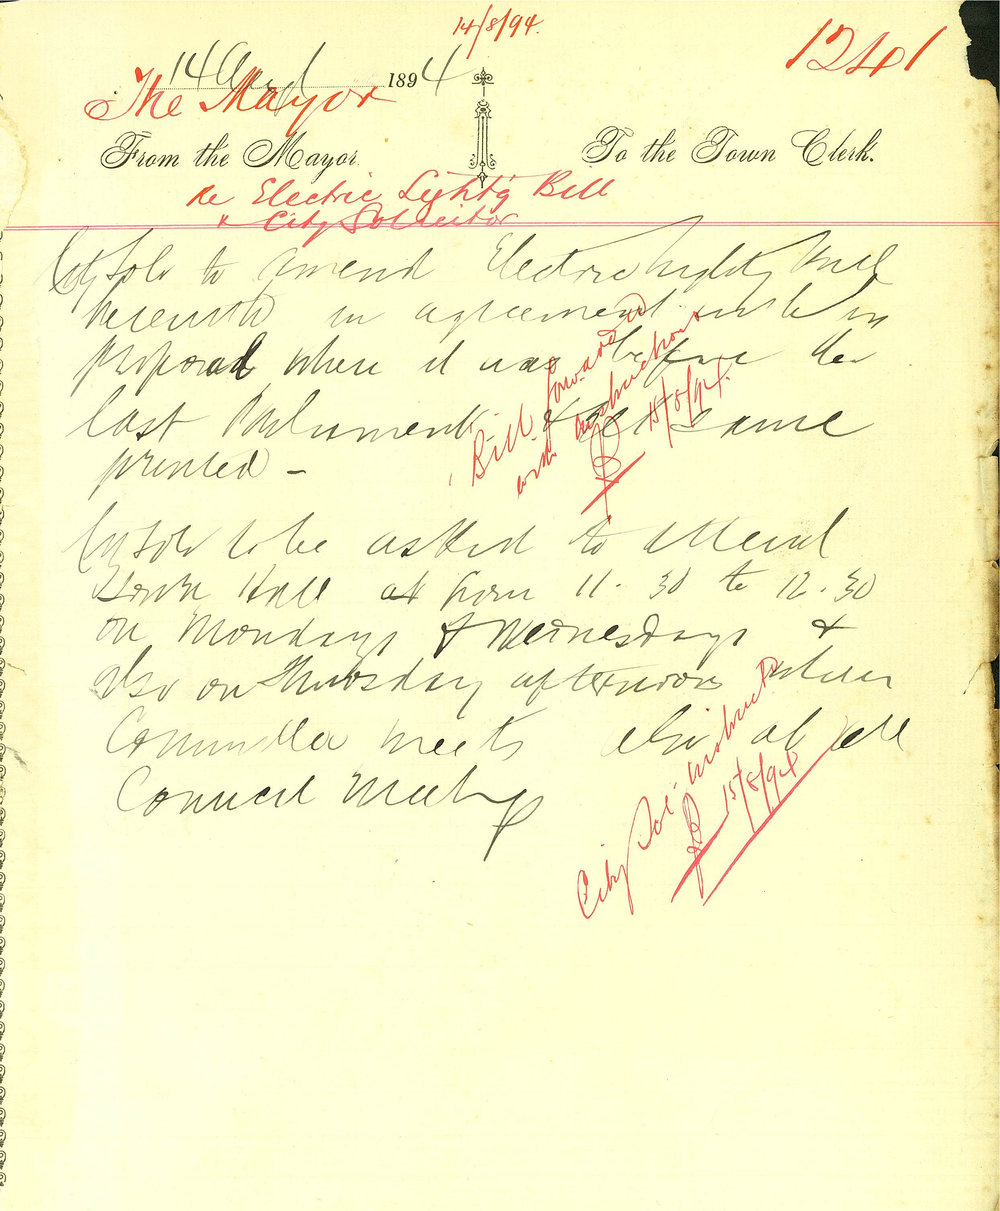 14/8/94.
1241
14 Augt 1894
The Mayor
From the Mayor. To the Town Clerk.
re Electric Lightg Bill
& City Solicitor
City Solr to amend Electric Lightg Bill
herewith in agreement with
proposal where it was before the
last Parliament & get same
printed -
Bill forwarded
with instructions
15/8/94.
City Solr to be asked to attend
Town Hall at from 11.30 to 12.30
on Mondays & Wednesdays &
also on Thursday afternoons when
Committee meets also at all
Council Meetings
City Sol. instructed
15/8/94